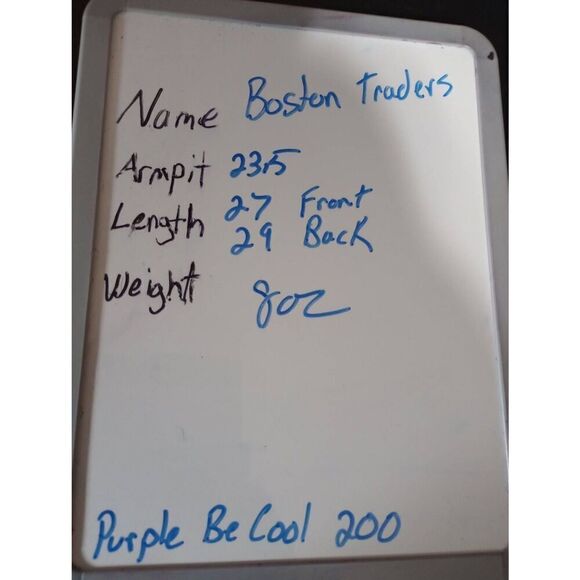 Name Boston Traders
Armpit 23.5
Length 27 Front
29 Back
Weight 8oz
Purple Be Cool 200